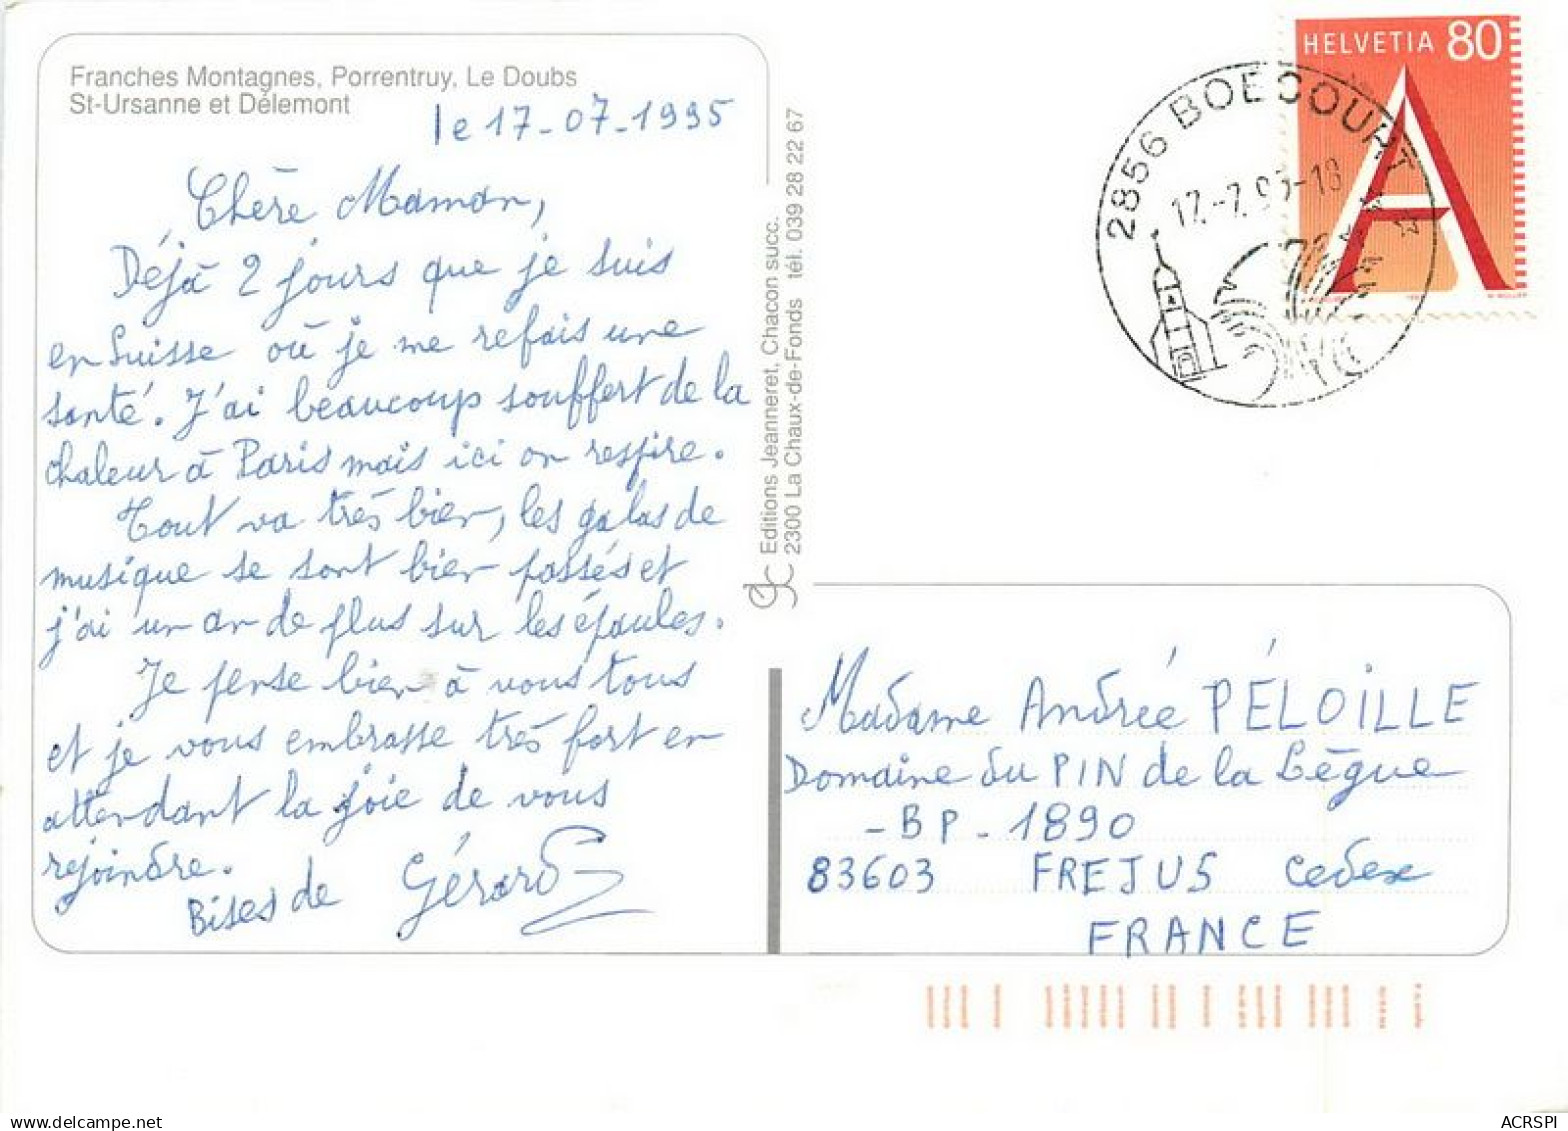 Franches Montagnes, Porrentruy, Le Doubs
St-Ursanne et Délemont
le 17-07-1995
Chère Maman,
Déjà 2 jours que je suis
en Suisse où je me refais une
santé. J'ai beaucoup souffert de la
chaleur à Paris mais ici on respire.
Tout va très bien, les galas de
musique se sont bien passés et
j'ai un an de plus sur les épaules.
Je pense bien à vous tous
et je vous embrasse très fort en
attendant la joie de vous
rejoindre.
Bises de Gérard
Editions Jeanneret, Chacon succ.
2300 La Chaux-de-Fonds tél. 039 28 22 67
HELVETIA 80
A
2856 BOECOURT
17.-7.95-18
Madame Andrée PÉLOILLE
Domaine du PIN de la Lègue
- BP - 1890
83603 FREJUS Cedex
FRANCE
ACRSPI